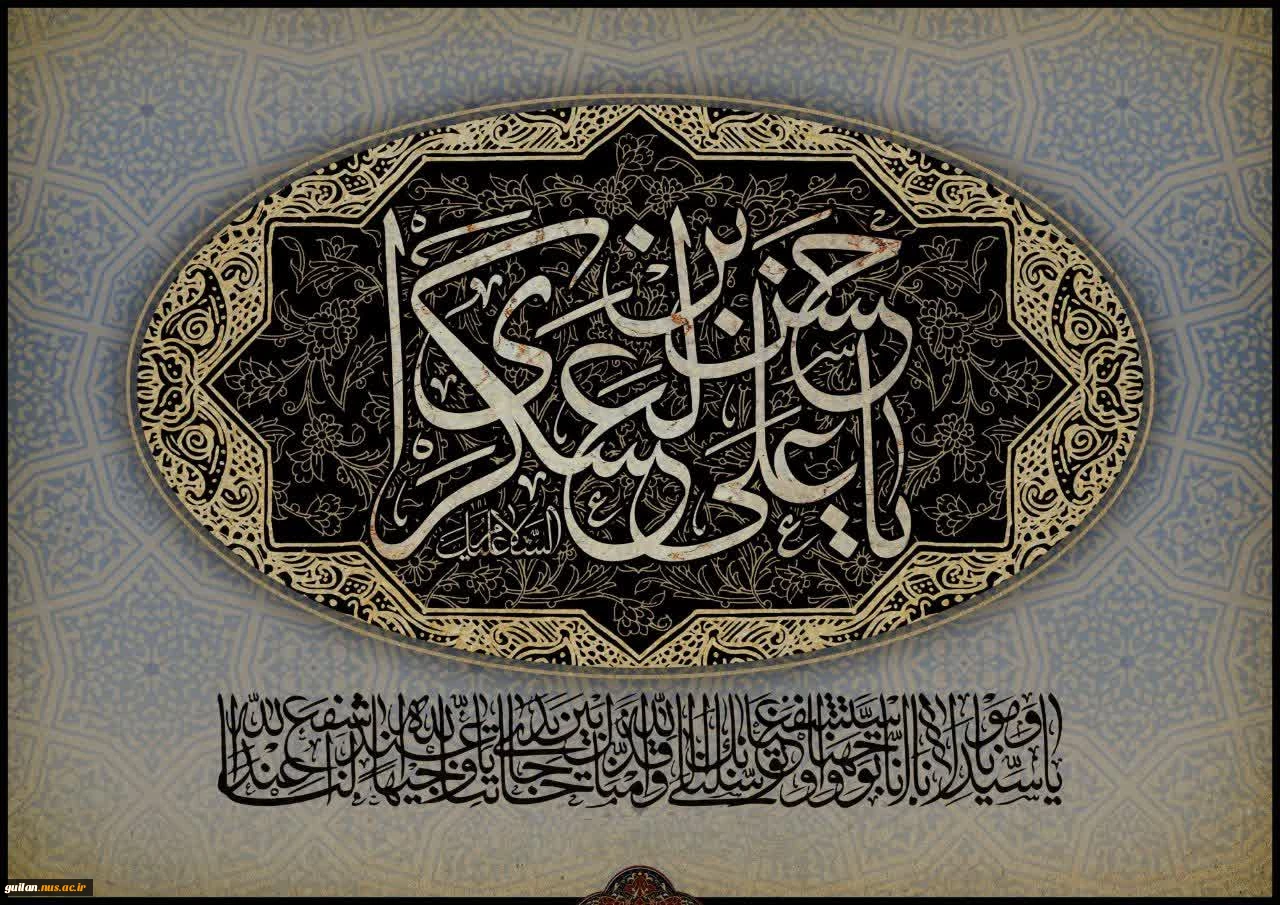 یا حسن بن علی العسکری
السلام علیک
یا سیدنا و مولانا انا توجهنا و استشفعنا و توسلنا بک الی الله و قدمناک بین یدی حاجاتنا یا وجیها عند الله اشفع لنا عند الله
guilan.nus.ac.ir